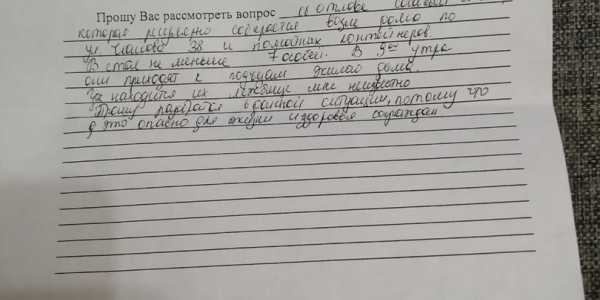 Прошу Вас рассмотреть вопрос об отлове
которая регулярно собирается возле дома по
ул. Чкалова 38 и помойных контейнеров.
В стае не меньше 7 особей. В 9 00 утра
они приходят к подъездам жилого дома.
Где находится их лежбище мне неизвестно
Прошу разобраться в данной ситуации, потому что
это опасно для жизни и здоровья сограждан.